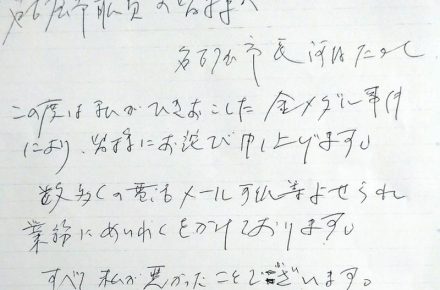 名古屋市職員の皆様へ
名古屋市長 河村たかし
この度は私がひきおこした金メダル事件
により、皆様にお詫び申し上げます。
数多くの電話メール手紙等よせられ
業務にめいわくをかけております。
すべて私が悪かったことでございます。